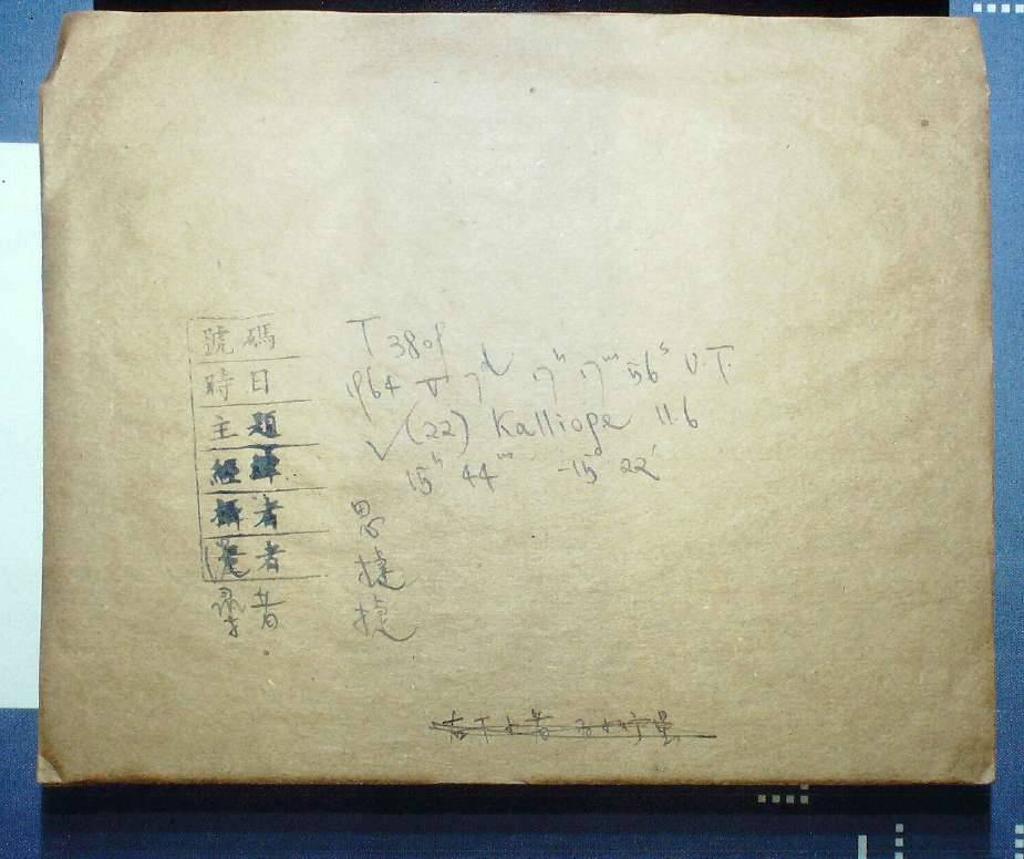 號碼 T 3801
時日 1964 V 7d 17h 17m 56s U.T.
主題 √(22) Kalliope 11.6
經緯 15h 44m -15° 22′
攝者 思
覽者 捷
尋者 捷